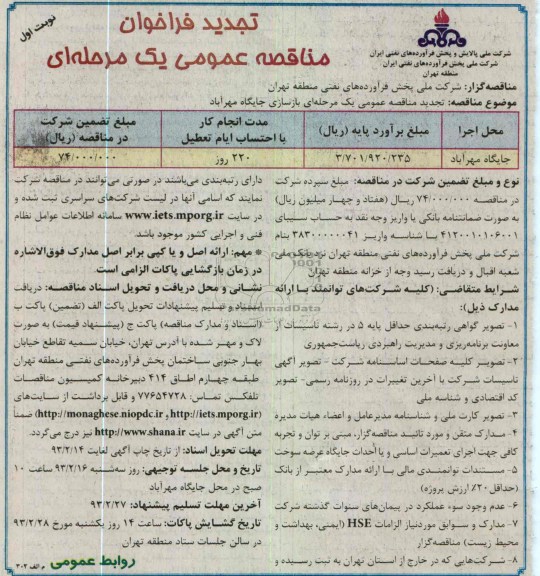 نوبت اول
تجدید فراخوان
مناقصه عمومی یک مرحله‌ای
شرکت ملی پالایش و پخش فرآورده‌های نفتی ایران
شرکت ملی پخش فرآورده‌های نفتی ایران
منطقه تهران
مناقصه‌گزار: شرکت ملی پخش فرآورده‌های نفتی منطقه تهران
موضوع مناقصه: تجدید مناقصه عمومی یک مرحله‌ای بازسازی جایگاه مهرآباد
محل اجرا
مبلغ برآورد پایه (ریال)
مدت انجام کار با احتساب ایام تعطیل
مبلغ تضمین شرکت در مناقصه (ریال)
جایگاه مهرآباد
۳/۷۰۱/۹۲۰/۲۳۵
۲۲۰ روز
۷۴/۰۰۰/۰۰۰
نوع و مبلغ تضمین شرکت در مناقصه: مبلغ سپرده شرکت
در مناقصه ۷۴/۰۰۰/۰۰۰ ریال (هفتاد و چهار میلیون ریال)
به صورت ضمانتنامه بانکی یا واریز وجه نقد به حساب سیبای
۴۱۲۰۰۱۱۰۱۶۰۰۱ با شناسه واریز ۳۸۳۰۰۰۰۰۰۴۱ بنام
شرکت ملی پخش فرآورده‌های نفتی منطقه تهران نزد بانک ملی
شعبه اقبال و دریافت رسید وجه از خزانه منطقه تهران
شرایط متقاضی: (کلیه شرکت‌های توانمند با ارائه
مدارک ذیل):
۱- تصویر گواهی رتبه‌بندی حداقل پایه ۵ در رشته تاسیسات از
معاونت برنامه‌ریزی و مدیریت راهبردی ریاست‌جمهوری
۲- تصویر کلیه صفحات اساسنامه شرکت - تصویر آگهی
تاسیسات شرکت با آخرین تغییرات در روزنامه رسمی- تصویر
کد اقتصادی و شناسه ملی
۳- تصویر کارت ملی و شناسنامه مدیرعامل و اعضاء هیات مدیره
۴- مدارک متقن و مورد تائید مناقصه‌گزار، مبنی بر توان و تجربه
کافی جهت اجرای تعمیرات اساسی و یا احداث جایگاه عرضه سوخت
۵- مستندات توانمندی مالی با ارائه مدارک معتبر از بانک
(حداقل ۲۰٪ ارزش پروژه)
۶- عدم وجود سوء عملکرد در پیمان‌های سنوات گذشته شرکت
۷- مدارک و سوابق موردنیاز الزامات HSE (ایمنی، بهداشت و
محیط زیست) مناقصه‌گزار
۸- شرکت‌هایی که در خارج از استان تهران به ثبت رسیده و
دارای رتبه‌بندی می‌باشند در صورتی می‌توانند در مناقصه شرکت
نمایند که اسامی آنها در لیست شرکت‌های سراسری ثبت شده و
در سایت www.iets.mporg.ir سامانه اطلاعات عوامل نظام
فنی و اجرایی کشور موجود باشد.
* مهم: ارائه اصل و یا کپی برابر اصل مدارک فوق‌الاشاره
در زمان بازگشایی پاکات الزامی است
نشانی و محل دریافت و تحویل اسناد مناقصه: دریافت
اسناد و تسلیم پیشنهادات تحویل پاکت الف (تضمین) پاکت ب
(اسناد و مدارک مناقصه) پاکت ج (پیشنهاد قیمت) به صورت
لاک و مهر شده با آدرس تهران، خیابان سمیه تقاطع خیابان
بهار جنوبی ساختمان پخش فرآورده‌های نفتی منطقه تهران
طبقه چهارم اطاق ۴۱۴ دبیرخانه کمیسیون مناقصات
تلفکس تماس: ۷۷۶۵۴۷۲۸ و قابل برداشت از سایت‌های
(http://monaghese.niopdc.ir و http://iets.mporg.ir) ضمناً
متن آگهی در سایت http://www.shana.ir نیز درج می‌گردد.
مهلت تحویل اسناد: از تاریخ چاپ آگهی لغایت ۹۳/۲/۱۴
تاریخ و محل جلسه توجیهی: روز سه‌شنبه ۹۳/۲/۱۶ ساعت ۱۰
صبح در محل جایگاه مهرآباد
آخرین مهلت تسلیم پیشنهاد: ۹۳/۲/۲۷
تاریخ گشایش پاکات: ساعت ۱۴ روز یکشنبه مورخ ۹۳/۲/۲۸
در سالن جلسات ستاد منطقه تهران
روابط عمومی
م الف ۳۰۲